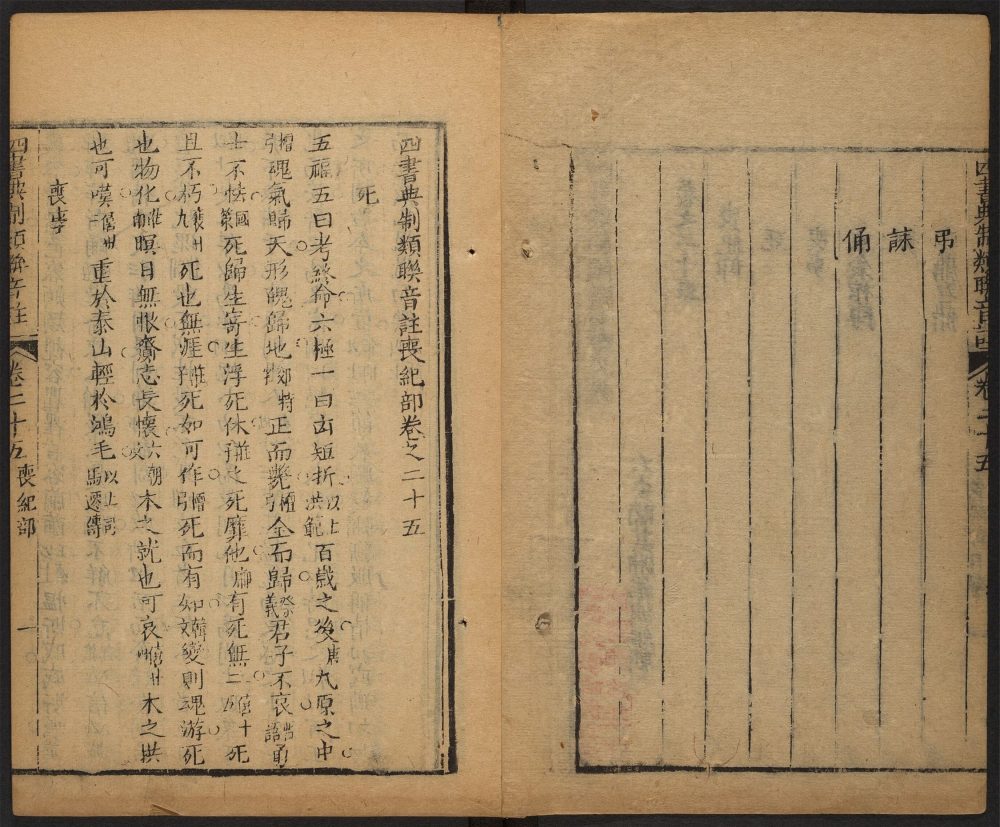 弔
誄
俑
四書典制類聯音註 卷二十五
四書典制類聯音註喪紀部卷之二十五
死
五福五曰考終命六極一曰凶短折以上洪範百歲之後唐九原之中檀
弓魂氣歸天形魄歸地郊特牲正而斃檀弓全而歸祭義君子不哀勇
士不怯國策死歸生寄生浮死休死靡他鄘有死無二死
且不朽死也無涯莊子死如可作檀弓死而有知變則魂游死
也物化莊瞑目無恨齎志長懷六朝文木之就也可哀木之拱
也可嘆重於泰山輕於鴻毛以上司馬遷傳
喪事
四書典制類聯音註 卷二十五 喪紀部 一